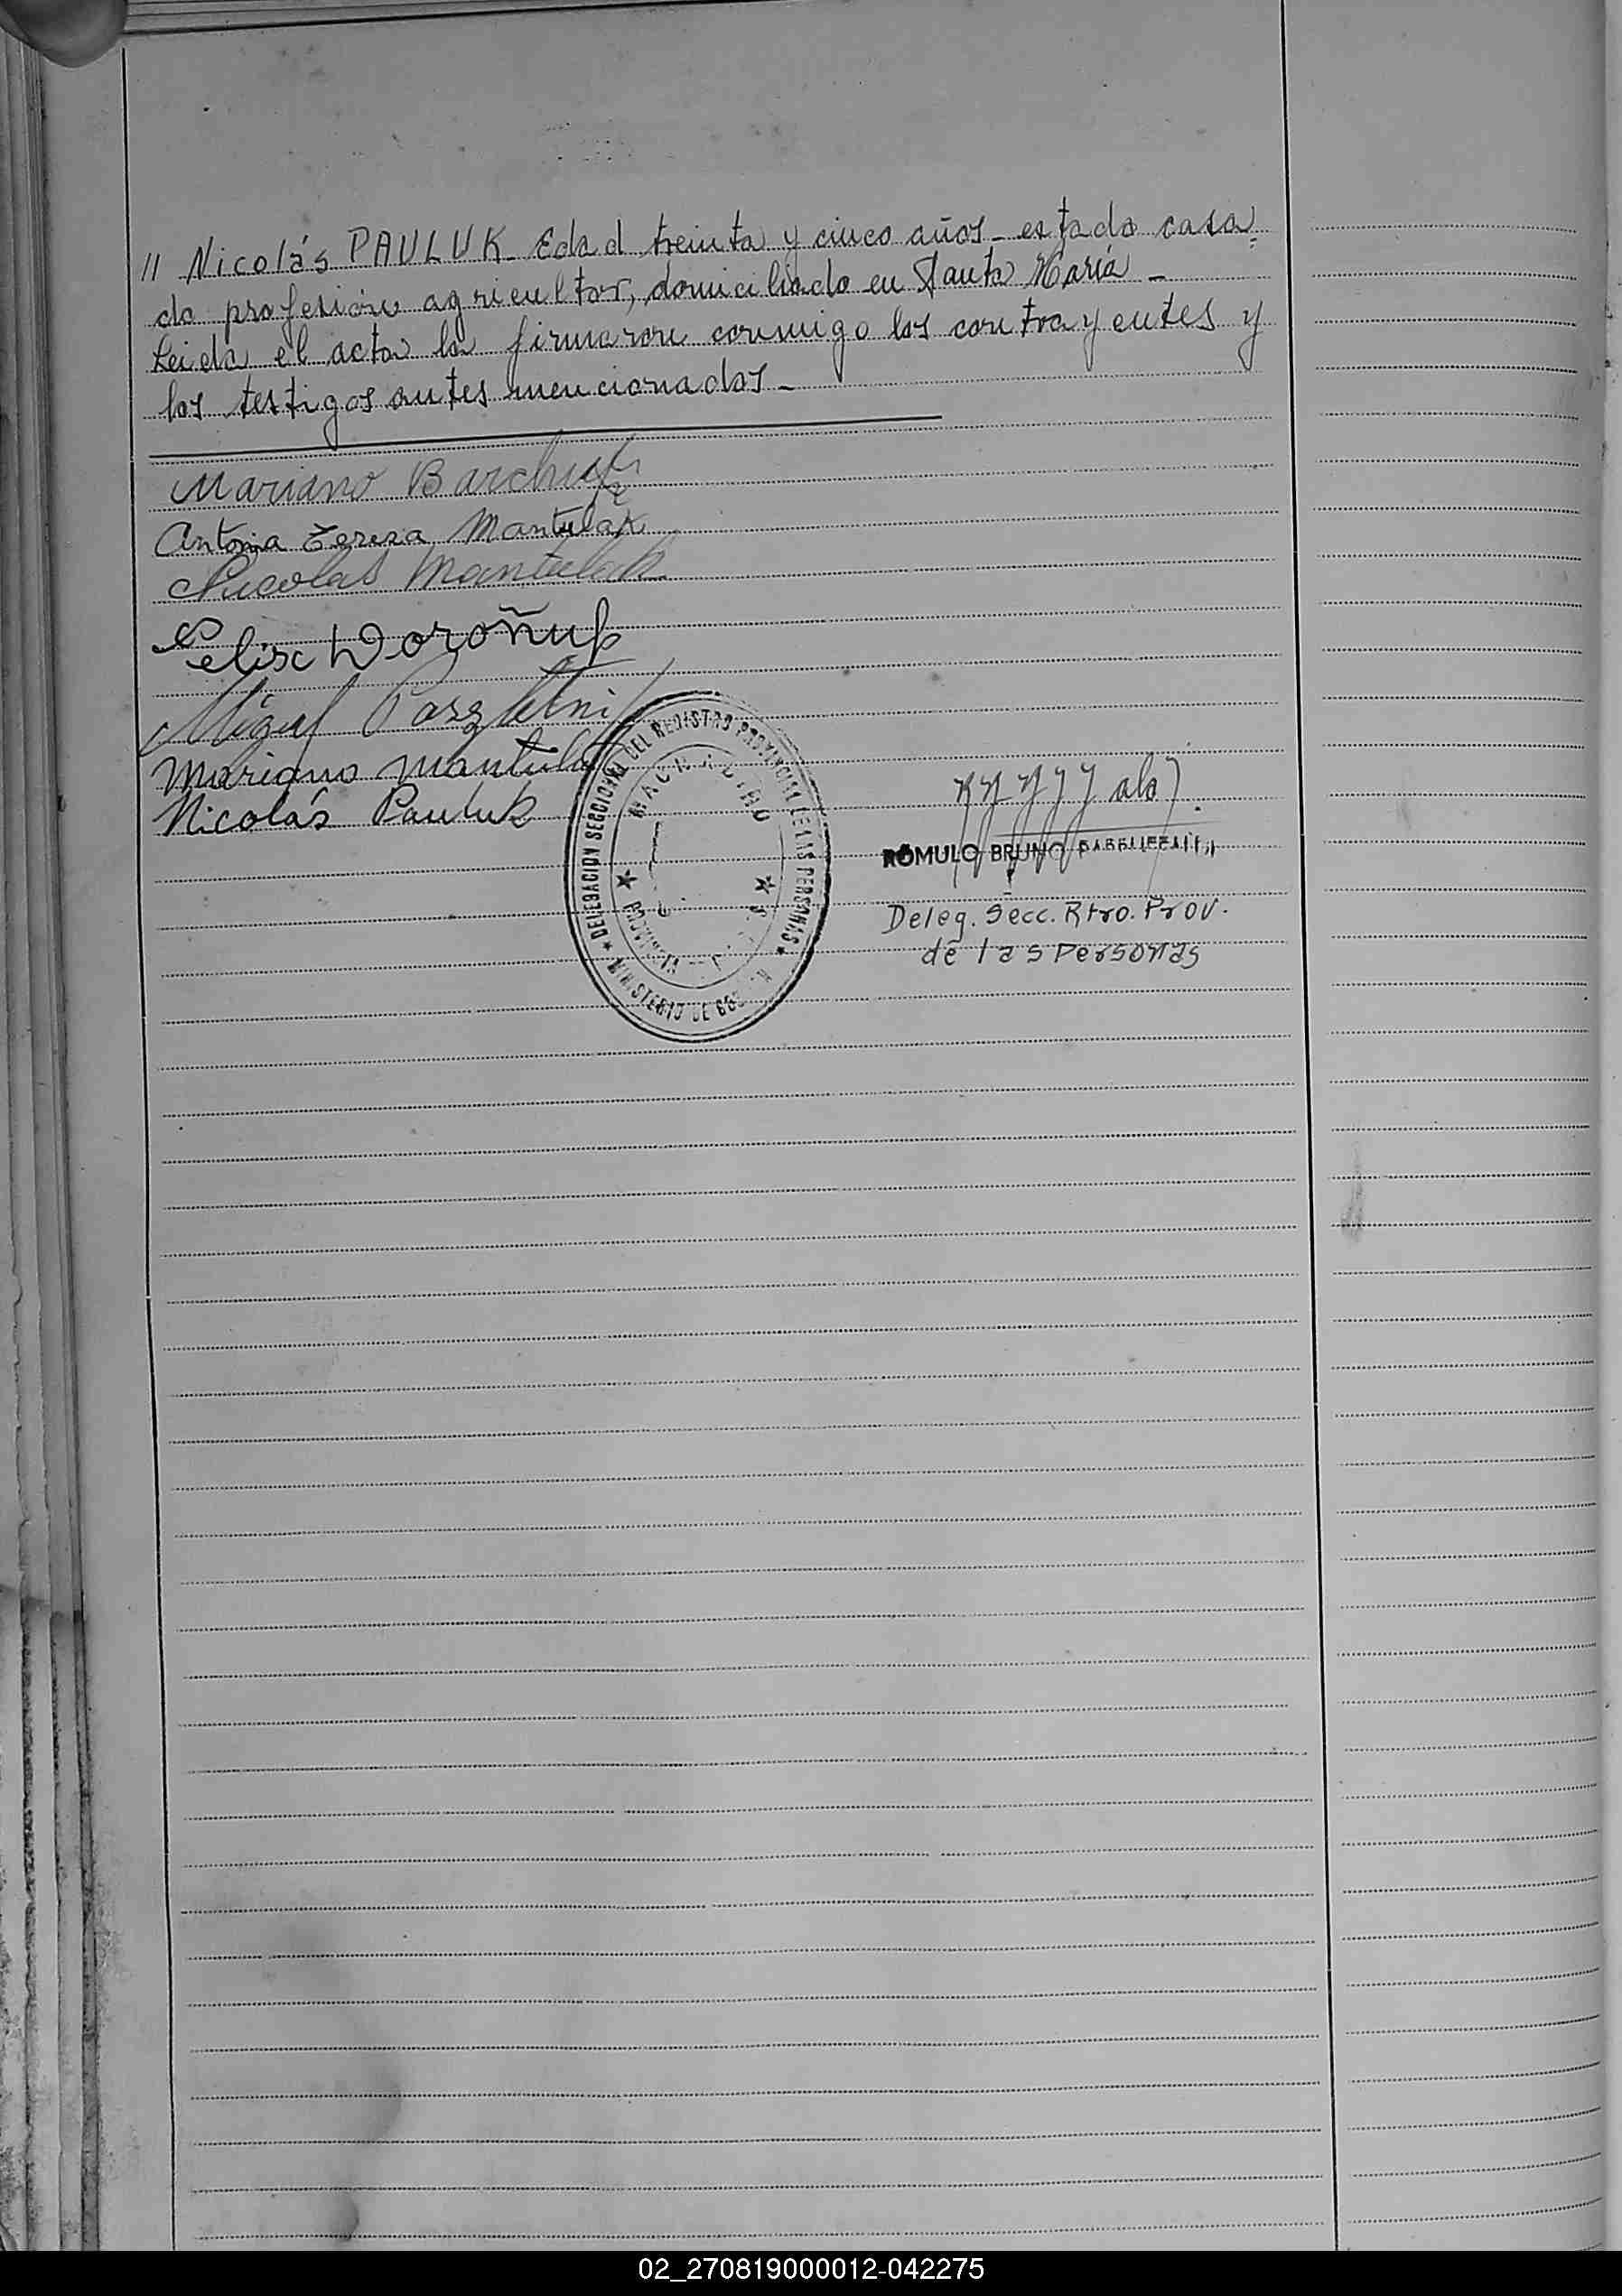 // Nicolás PAULUK. Edad treinta y cinco años - estado casa=
do profesión agricultor, domiciliado en Santa María -
Leida el acta la firmaron conmigo los contrayentes y
los testigos antes mencionados -
Mariano Barchuk
Antonia Tereza Mantulak
Nicolas Mantulak
Felisa Doroñuk
Miguel
Mariano Mantulak
Nicolás Pauluk
DELEGACION SECCIONAL DEL REGISTRO PROVINCIAL DE LAS PERSONAS
MINISTERIO DE
ROMULO BRUNO
Deleg. Secc. Rtro. Prov.
de las Personas
02_270819000012-042275